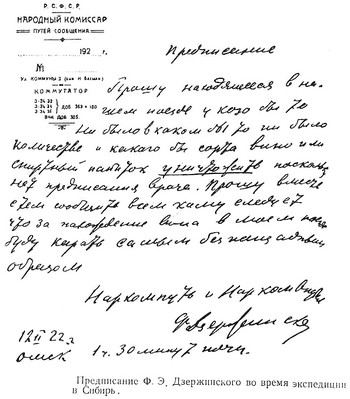 Р. С. Ф. С. Р.
НАРОДНЫЙ КОМИССАР
ПУТЕЙ СООБЩЕНИЯ
192 г.
№
КОММУТАТОР
Предписание
Прошу находящееся в на-
шем поезде у кого бы то
ни было в каком бы то ни было
количестве и какого бы сорта вино или
спиртный напиток уничтожить поскольку
нет предписания врача. Прошу вместе
с тем сообщить всем кому следует
что за нахождение вина в моем поезде
буду карать самым беспощадным
образом
Наркомпуть и Наркомвнудел
Ф Дзержинский
12/II 22 г.
Омск 1 ч. 30 минут ночи.
Предписание Ф. Э. Дзержинского во время экспедиции
в Сибирь.